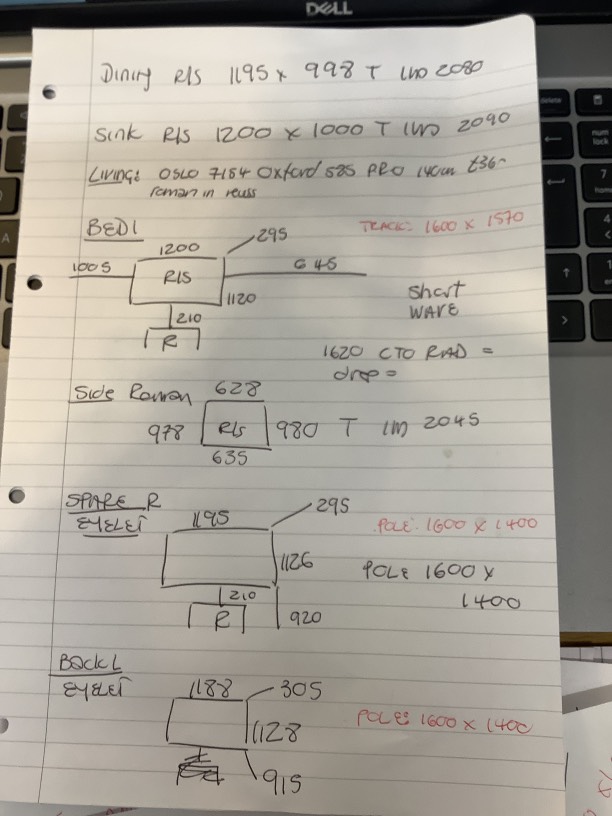 DELL
Dining R/S 1195 x 998 T 1W 2080
Sink R/S 1200 x 1000 T 1W 2090
Living: OSLO 7154 Oxford 585 PRO 140cm £36-
roman in recess
BED 1
TRACK: 1600 x 1570
1200
295
1005
R/S
645
1120
short
WAVE
210
R
1620 CTO RAD =
drop =
Side Roman 628
978 R/S 980 T 1W 2045
635
SPARE R
EYELET
1195
295
POLE: 1600 x 1400
1126
POLE 1600 x
1400
210
R
920
BACK L
EYELET
1188
305
1128
POLE: 1600 x 1400
915
delete
num
lock
7
home
4
A